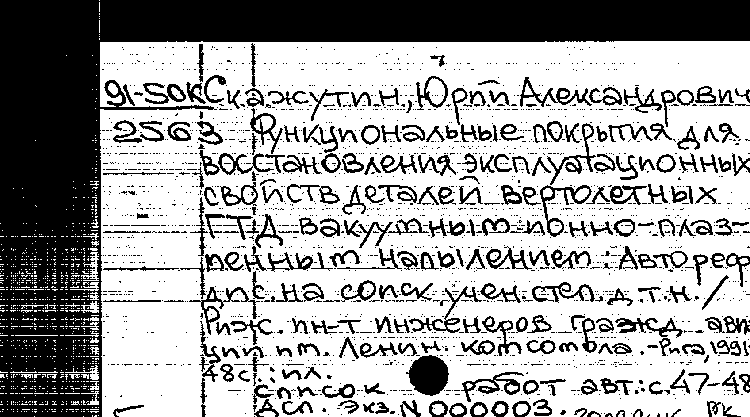 91-50К Скажутин, Юрий Александрович
2563 Функциональные покрытия для
восстановления эксплуатационных
свойств деталей вертолетных
ГТД вакуумным ионно-плаз-
менным напылением: Автореф.
дис. на соиск. учен. степ. д.т.н. /
Риж. ин-т инженеров гражд. авиа
ции им. Ленин. комсомола. - Рига, 1991
48с.: ил.
список работ авт.: с. 47-48
ДСП. Экз. N 000003.